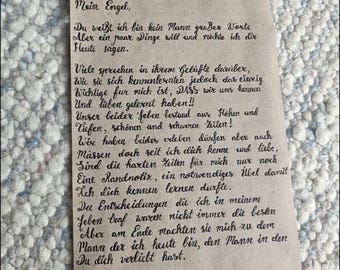 Mein Engel,
Du weißt ich bin kein Mann großer Worte
Aber ein paar Dinge will und möchte ich dir
Heute sagen.
Viele sprechen in ihrem Gelüfte darüber,
Wie sie sich kennenlernten jedoch das einzig
Wichtige für mich ist, DASS wir uns kennen
Und lieben gelernt haben!!
Unser beider Leben bestand aus Höhen und
Tiefen, schönen und schweren Zeiten!
Wir haben beides erleben dürfen aber auch
Müssen doch seit ich dich kenne und liebe,
Sind die harten Zeiten für mich nur noch
Eine Randnotiz, ein notwendiges Übel damit
Ich dich kennen lernen durfte.
Die Entscheidungen die ich in meinem
Leben traf waren nicht immer die besten
Aber am Ende machten sie mich zu dem
Mann der ich heute bin, den Mann in den
Du dich verliebt hast.